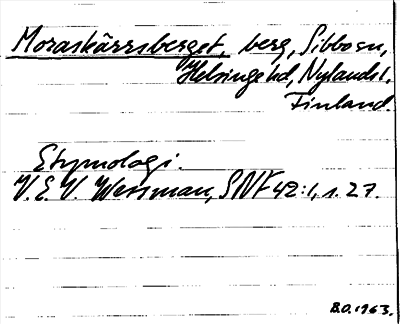 Moraskärrsberget, berg, Sibbo sn,
Helsinge hd, Nylands l,
Finland.
Etymologi.
V. E. V. Wessman, SNF 42:1, s. 27.
B.O. 1963.